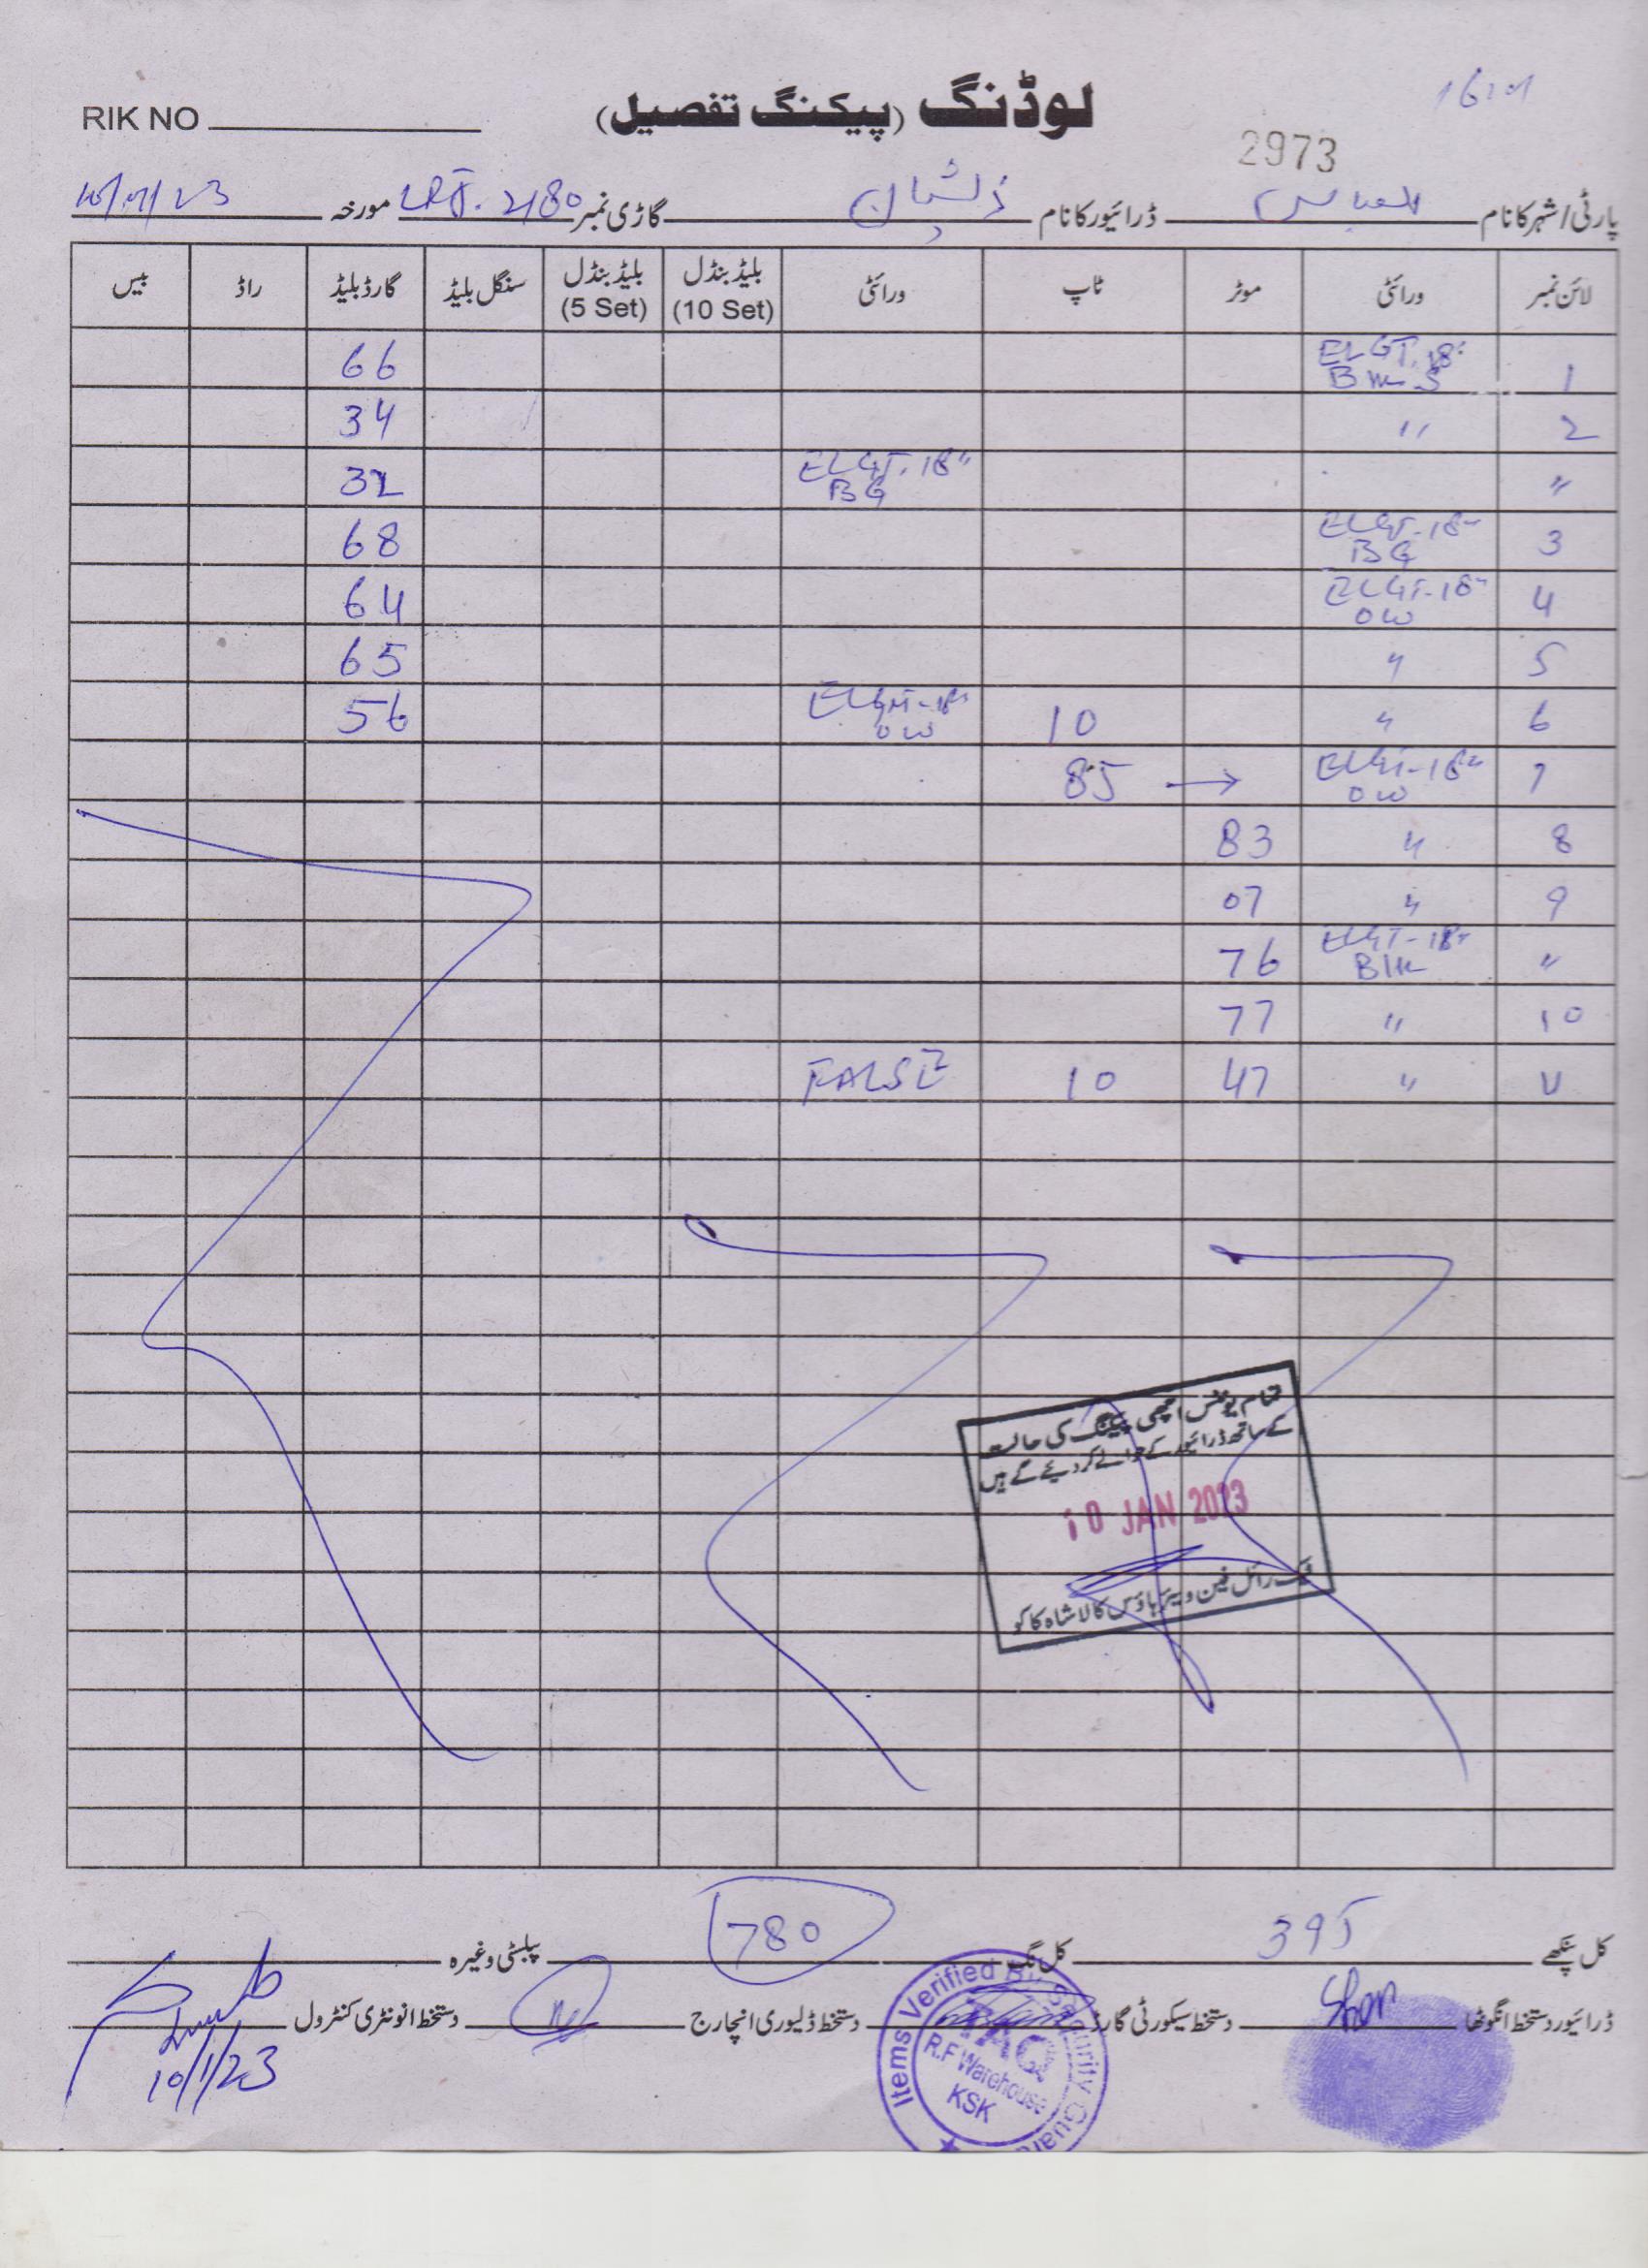 لوڈنگ (پیکنگ تفصیل)
RIK NO
2973
پارٹی/شہر کا نام العباس ڈرائیور کا نام ذیشان گاڑی نمبر 2180 مورخہ 10/01/23
لائن نمبر ورائٹی موٹر ٹاپ ورائٹی بلیڈ بنڈل (10 Set) بلیڈ بنڈل (5 Set) سنگل بلیڈ گارڈ بلیڈ راڈ بیس
1 ELGT.18" 66
2 " 34
" ELGT.18" BG 32
3 ELGT-18" BG 68
4 ELGT-18" OW 64
5 " 65
6 " 10 OW 56
7 ELGT-18" OW → 85
8 " 83
9 " 07
" ELGT-18" Blk 76
10 " 77
11 " 47 10 FALSE
تمام یونٹس اچھی پیکنگ کی حالت
کے ساتھ ڈرائیور کے حوالے کر دیئے گے ہیں
10 JAN 2023
رائل فین ویئر ہاؤس کالا شاہ کاکو
کل پنکھے 395 کل نگ 780 پبلسٹی وغیرہ
ڈرائیور دستخط انگوٹھا Shan دستخط سیکورٹی گارڈ دستخط ڈلیوری انچارج دستخط انونٹری کنٹرول
10/1/23
Items Verified By Security Guard
R.F Warehouse
KSK